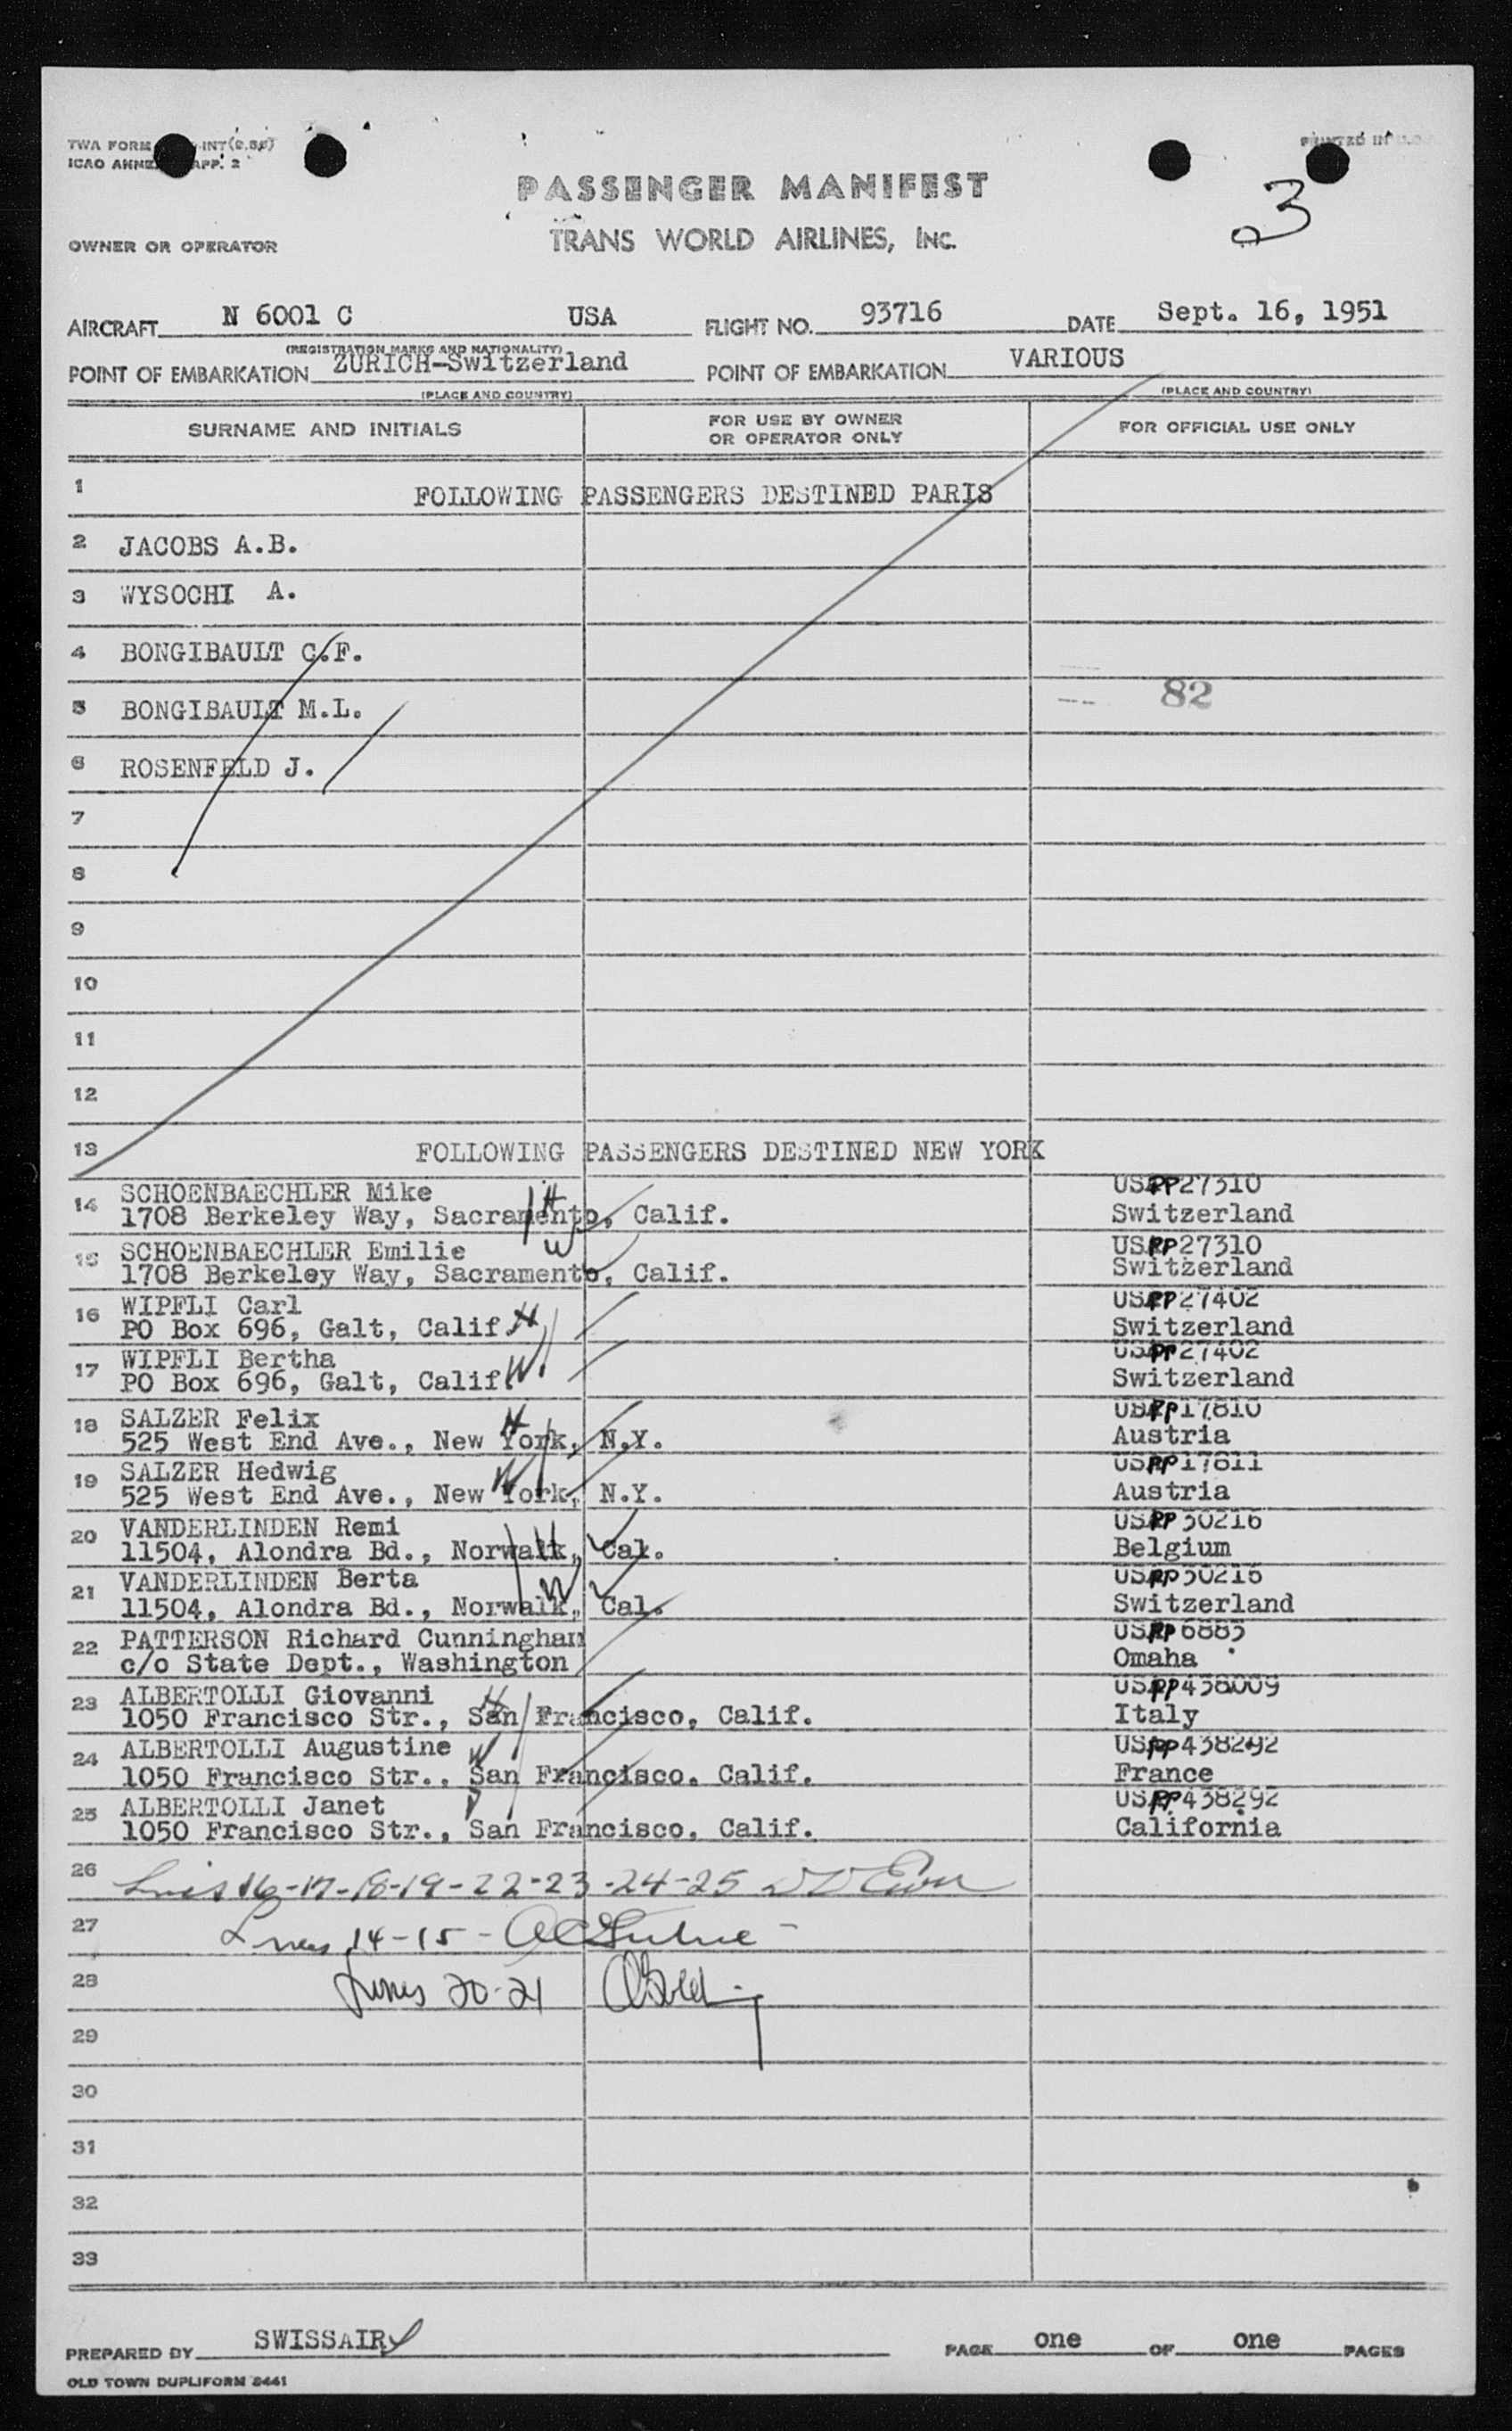 TWA FORM INT(2.50)
ICAO ANNEX APP. 2
PRINTED IN U.S.A.
PASSENGER MANIFEST
3
OWNER OR OPERATOR
TRANS WORLD AIRLINES, INC.
AIRCRAFT N 6001 C USA FLIGHT NO. 93716 DATE Sept. 16, 1951
(REGISTRATION MARKS AND NATIONALITY)
POINT OF EMBARKATION ZURICH-Switzerland POINT OF EMBARKATION VARIOUS
(PLACE AND COUNTRY) (PLACE AND COUNTRY)
SURNAME AND INITIALS FOR USE BY OWNER OR OPERATOR ONLY FOR OFFICIAL USE ONLY
1 FOLLOWING PASSENGERS DESTINED PARIS
2 JACOBS A.B.
3 WYSOCHI A.
4 BONGIBAULT C.F.
5 BONGIBAULT M.L. 82
6 ROSENFELD J.
7
8
9
10
11
12
13 FOLLOWING PASSENGERS DESTINED NEW YORK
14 SCHOENBAECHLER Mike H USPP27310
1708 Berkeley Way, Sacramento, Calif. Switzerland
15 SCHOENBAECHLER Emilie W USPP27310
1708 Berkeley Way, Sacramento, Calif. Switzerland
16 WIPFLI Carl USPP27402
PO Box 696, Galt, Calif. H Switzerland
17 WIPFLI Bertha USPP27402
PO Box 696, Galt, Calif. W Switzerland
18 SALZER Felix H USPP17810
525 West End Ave., New York, N.Y. Austria
19 SALZER Hedwig W USPP17811
525 West End Ave., New York, N.Y. Austria
20 VANDERLINDEN Remi USPP30216
11504, Alondra Bd., Norwalk, Cal. H Belgium
21 VANDERLINDEN Berta W USPP30216
11504, Alondra Bd., Norwalk, Cal. Switzerland
22 PATTERSON Richard Cunningham USPP6885
c/o State Dept., Washington Omaha
23 ALBERTOLLI Giovanni H USPP438009
1050 Francisco Str., San Francisco, Calif. Italy
24 ALBERTOLLI Augustine W USPP438292
1050 Francisco Str., San Francisco, Calif. France
25 ALBERTOLLI Janet D USPP438292
1050 Francisco Str., San Francisco, Calif. California
26 Lines 16-17-18-19-22-23-24-25
27 Lines 14-15-
28 Lines 20-21
29
30
31
32
33
PREPARED BY SWISSAIR PAGE one OF one PAGES
OLD TOWN DUPLIFORM 8441